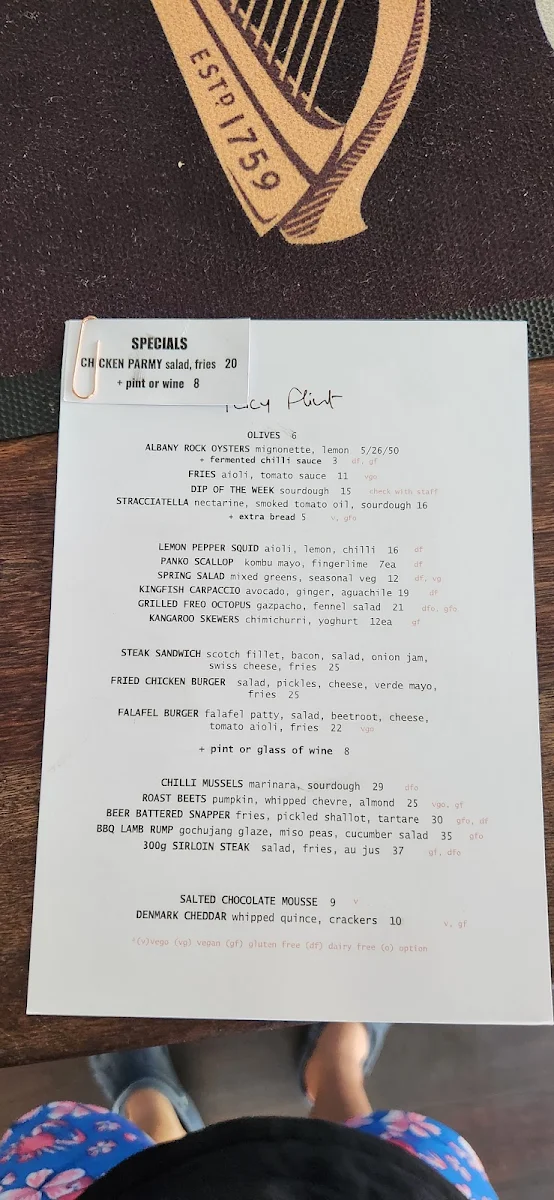 ESTD 1759
SPECIALS
CHICKEN PARMY salad, fries 20
+ pint or wine 8
Flint
OLIVES 6
ALBANY ROCK OYSTERS mignonette, lemon 5/26/50
+ fermented chilli sauce 3 df, gf
FRIES aioli, tomato sauce 11 vgo
DIP OF THE WEEK sourdough 15 check with staff
STRACCIATELLA nectarine, smoked tomato oil, sourdough 16
+ extra bread 5 v, gfo
LEMON PEPPER SQUID aioli, lemon, chilli 16 df
PANKO SCALLOP kombu mayo, fingerlime 7ea df
SPRING SALAD mixed greens, seasonal veg 12 df, vg
KINGFISH CARPACCIO avocado, ginger, aguachile 19 df
GRILLED FREO OCTOPUS gazpacho, fennel salad 21 dfo, gfo
KANGAROO SKEWERS chimichurri, yoghurt 12ea gf
STEAK SANDWICH scotch fillet, bacon, salad, onion jam,
swiss cheese, fries 25
FRIED CHICKEN BURGER salad, pickles, cheese, verde mayo,
fries 25
FALAFEL BURGER falafel patty, salad, beetroot, cheese,
tomato aioli, fries 22 vgo
+ pint or glass of wine 8
CHILLI MUSSELS marinara, sourdough 29 dfo
ROAST BEETS pumpkin, whipped chevre, almond 25 vgo, gf
BEER BATTERED SNAPPER fries, pickled shallot, tartare 30 gfo, df
BBQ LAMB RUMP gochujang glaze, miso peas, cucumber salad 35 gfo
300g SIRLOIN STEAK salad, fries, au jus 37 gf, dfo
SALTED CHOCOLATE MOUSSE 9 v
DENMARK CHEDDAR whipped quince, crackers 10 v, gf
*(v)vego (vg) vegan (gf) gluten free (df) dairy free (o) option